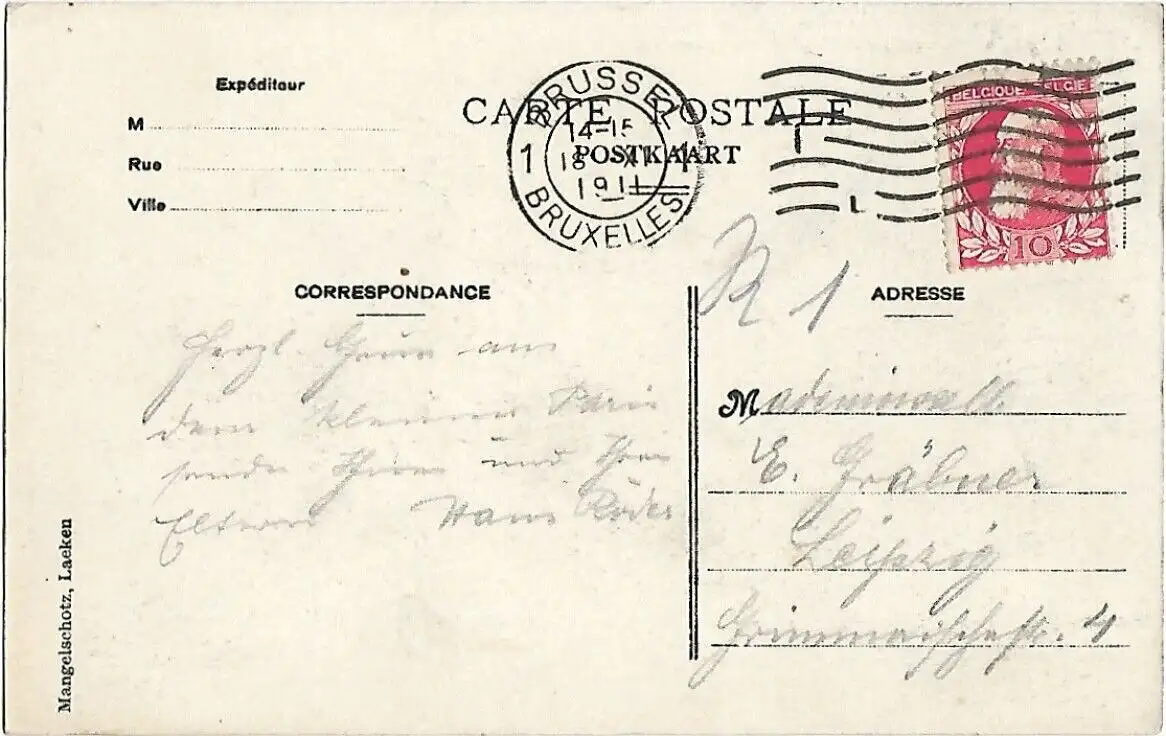 Expéditeur
M
Rue
Ville
CARTE POSTALE
POSTKAART
BRUSSEL
14-15
1 18 XI 1
1911
BRUXELLES
BELGIQUE BELGIE
10
R 1
CORRESPONDANCE
Herzl. Grüße aus
dem kleinen Paris
sendet Ihnen und Ihren
Eltern Hans Röder
ADRESSE
Mademoiselle
E. Gräbner
Leipzig
Grimmaischestr. 4
Mangelschotz, Laeken